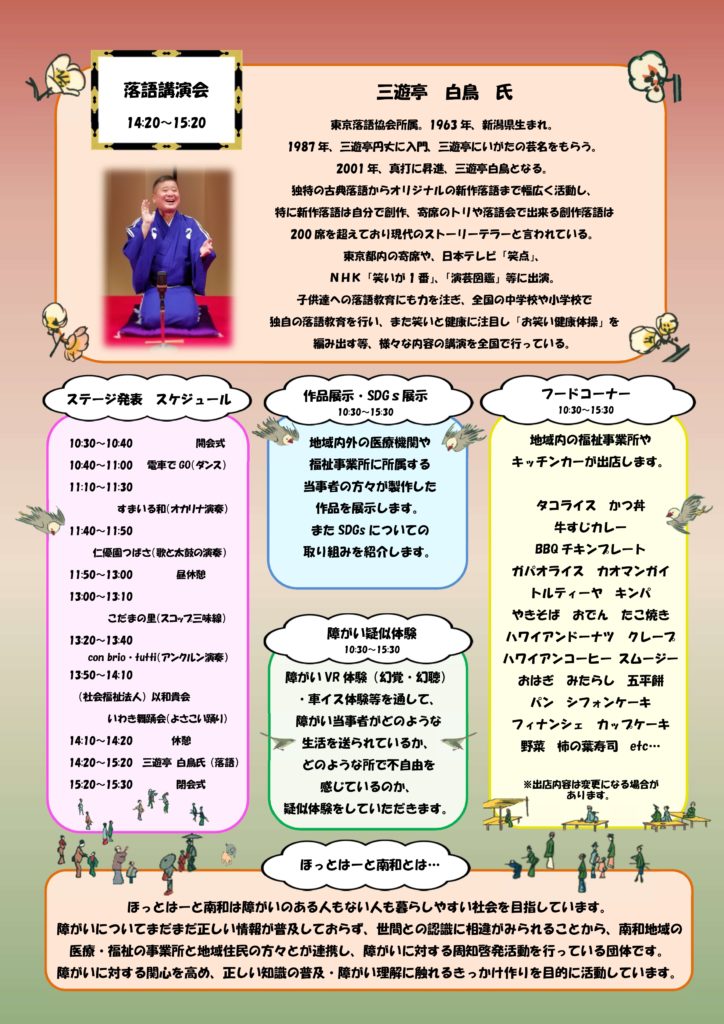 落語講演会
14:20～15:20
三遊亭　白鳥　氏
東京落語協会所属。1963年、新潟県生まれ。
1987年、三遊亭円丈に入門、三遊亭にいがたの芸名をもらう。
2001年、真打に昇進、三遊亭白鳥となる。
独特の古典落語からオリジナルの新作落語まで幅広く活動し、
特に新作落語は自分で創作、寄席のトリや落語会で出来る創作落語は
200席を超えており現代のストーリーテラーと言われている。
東京都内の寄席や、日本テレビ「笑点」、
ＮＨＫ「笑いが１番」、「演芸図鑑」等に出演。
子供達への落語教育にも力を注ぎ、全国の中学校や小学校で
独自の落語教育を行い、また笑いと健康に注目し「お笑い健康体操」を
編み出す等、様々な内容の講演を全国で行っている。
ステージ発表　スケジュール
10:30～10:40　開会式
10:40～11:00　電車でGO(ダンス)
11:10～11:30
すまいる和(オカリナ演奏)
11:40～11:50
仁優園つばさ(歌と太鼓の演奏)
11:50～13:00　昼休憩
13:00～13:10
こだまの里(スコップ三味線)
13:20～13:40
con brio・tutti(アンクルン演奏)
13:50～14:10
（社会福祉法人）以和貴会
いわき舞踊会(よさこい踊り)
14:10～14:20　休憩
14:20～15:20　三遊亭 白鳥氏（落語）
15:20～15:30　閉会式
作品展示・SDGｓ展示
10:30～15:30
地域内外の医療機関や
福祉事業所に所属する
当事者の方々が製作した
作品を展示します。
またSDGsについての
取り組みを紹介します。
障がい疑似体験
10:30～15:30
障がいVR体験（幻覚・幻聴）
・車イス体験等を通して、
障がい当事者がどのような
生活を送られているか、
どのような所で不自由を
感じているのか、
疑似体験をしていただきます。
フードコーナー
10:30～15:30
地域内の福祉事業所や
キッチンカーが出店します。
タコライス　かつ丼
牛すじカレー
BBQチキンプレート
ガパオライス　カオマンガイ
トルティーヤ　キンパ
やきそば　おでん　たこ焼き
ハワイアンドーナツ　クレープ
ハワイアンコーヒー スムージー
おはぎ　みたらし　五平餅
パン　シフォンケーキ
フィナンシェ　カップケーキ
野菜　柿の葉寿司　etc…
※出店内容は変更になる場合が
あります。
ほっとはーと南和とは…
ほっとはーと南和は障がいのある人もない人も暮らしやすい社会を目指しています。
障がいについてまだまだ正しい情報が普及しておらず、世間との認識に相違がみられることから、南和地域の
医療・福祉の事業所と地域住民の方々とが連携し、障がいに対する周知啓発活動を行っている団体です。
障がいに対する関心を高め、正しい知識の普及・障がい理解に触れるきっかけ作りを目的に活動しています。